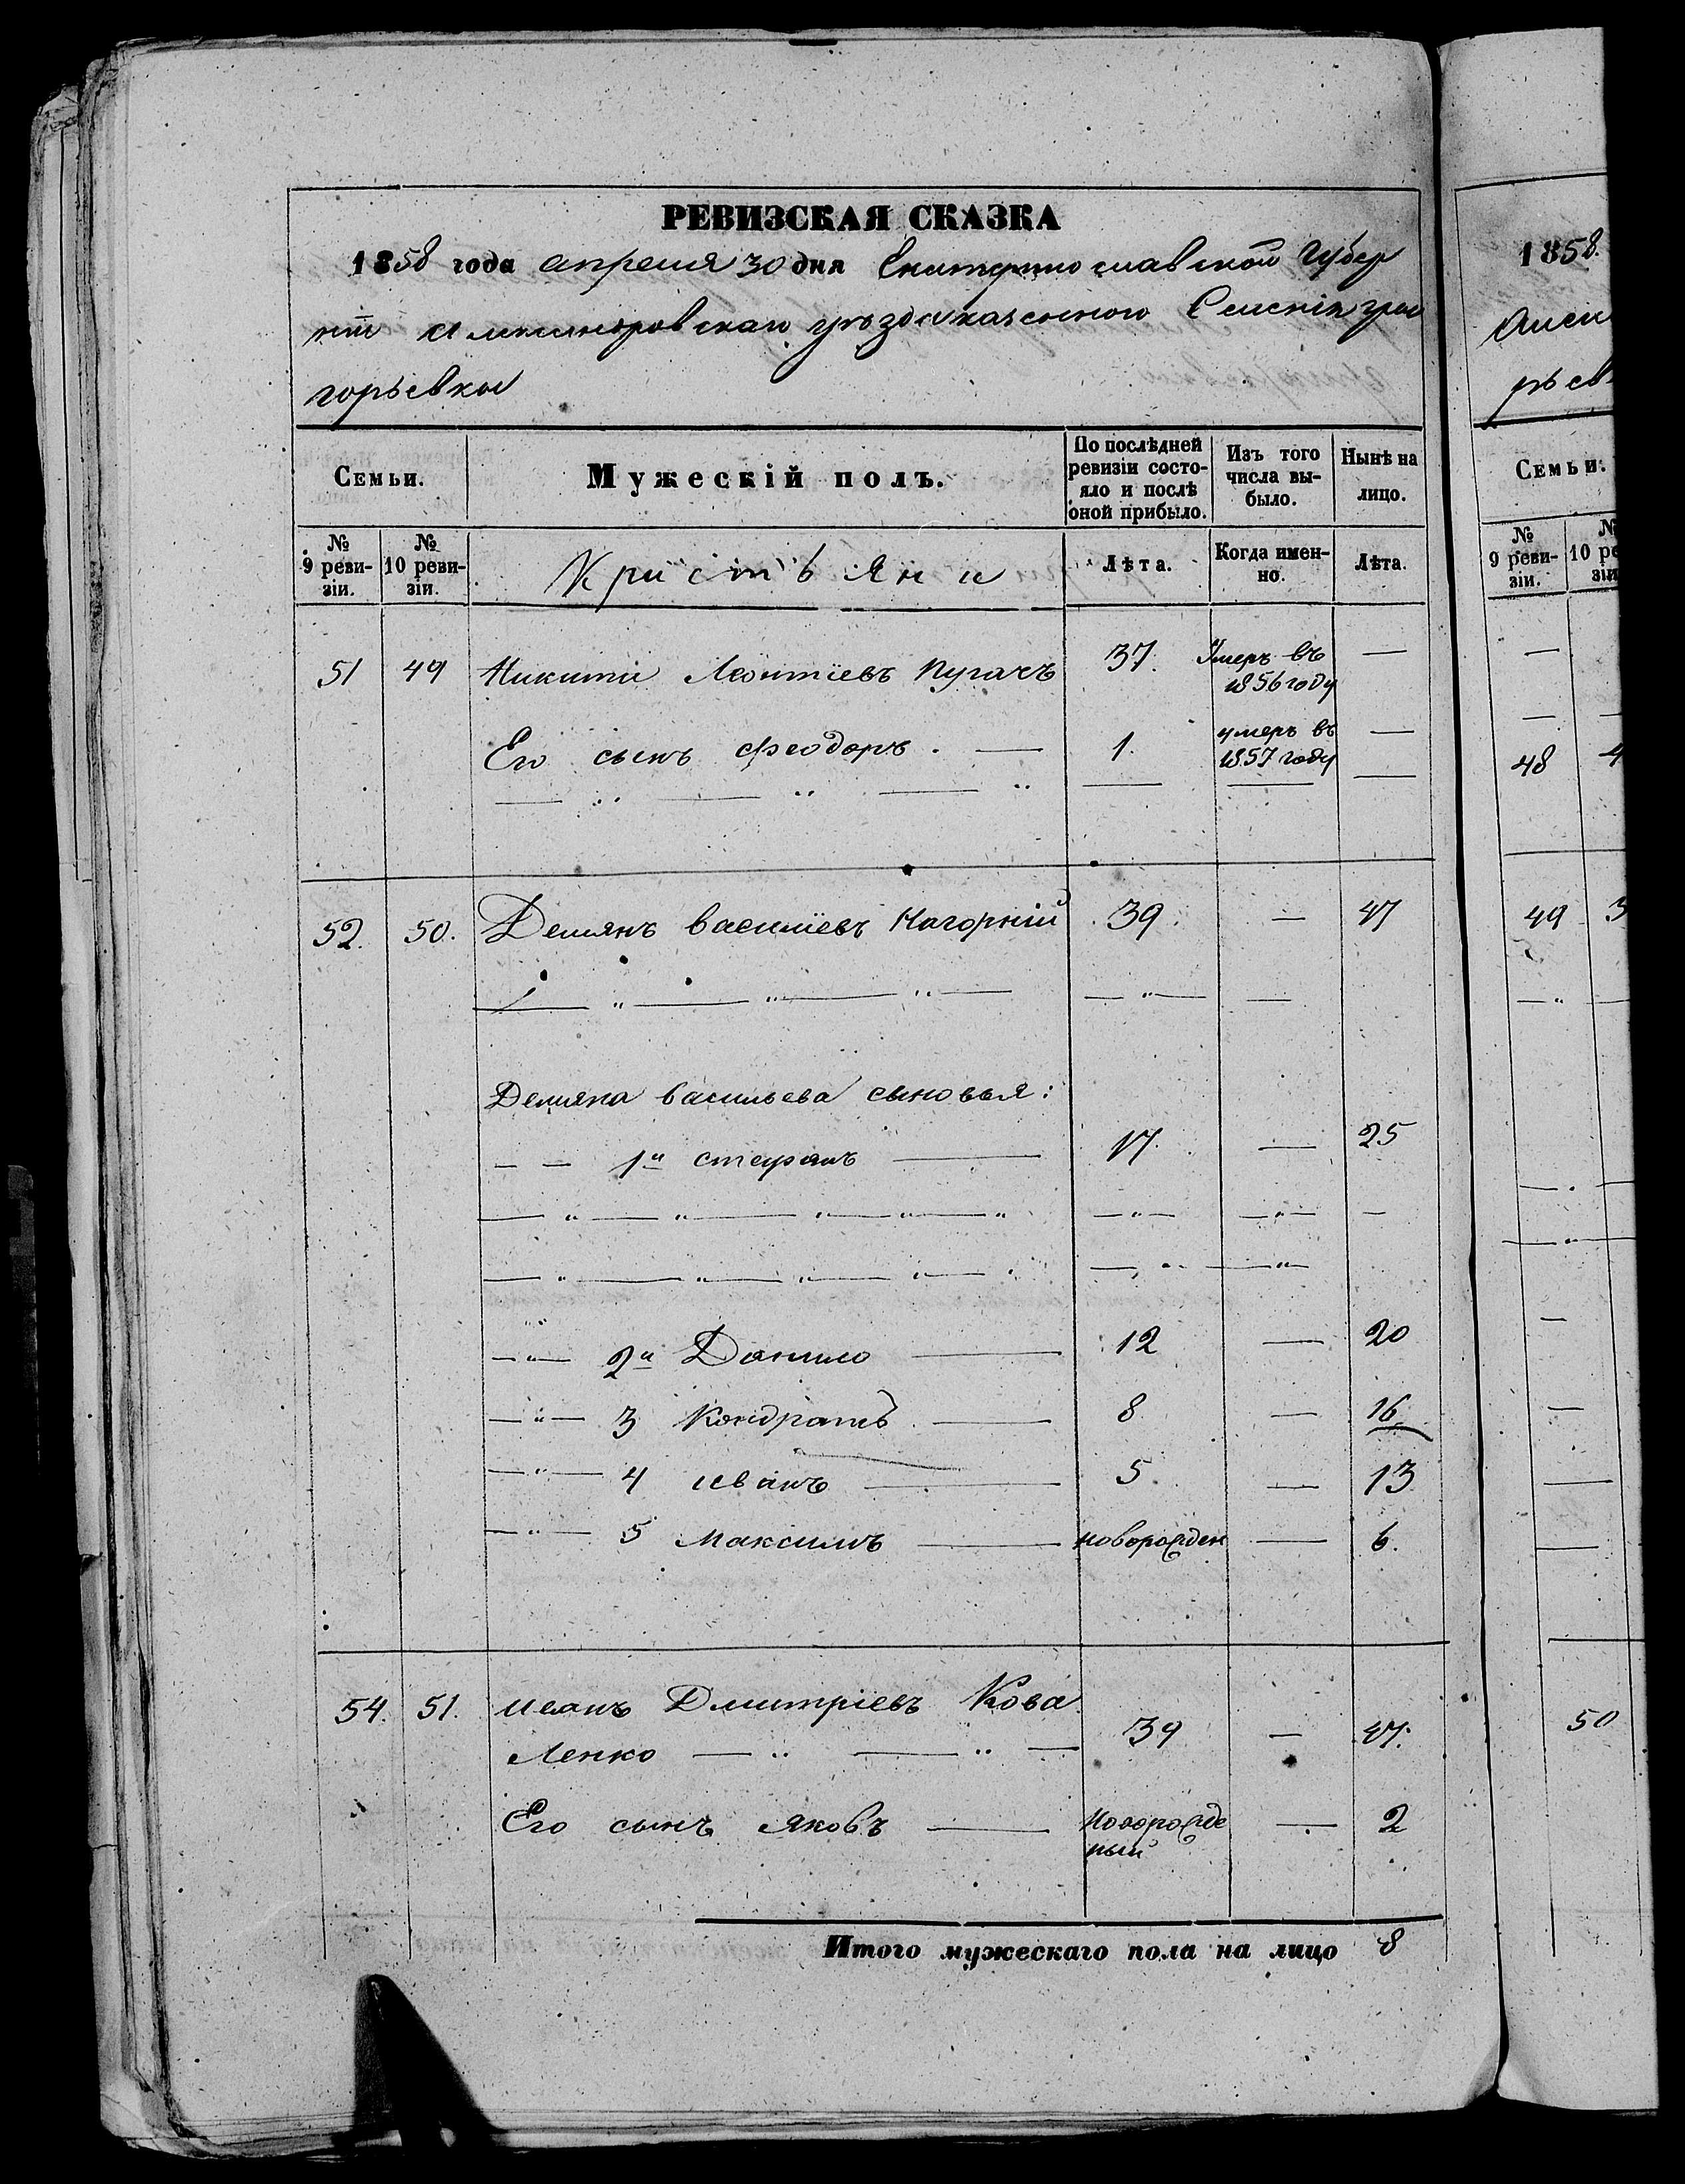 РЕВИЗСКАЯ СКАЗКА
1858 года апреля 30 дня Екатеринославской Губер
нiи Александровскаго уѣзда казенного Селенiя Гри
горьевки
Семьи. Мужескiй полъ. По послѣдней ревизiи состояло и послѣ оной прибыло. Изъ того числа выбыло. Нынѣ на лицо.
№ 9 ревизiи. № 10 ревизiи. Крiстьяни Лѣта. Когда именно. Лѣта.
51 49 Никита Леонтiевъ Пугачъ 37. Умеръ въ 1856 году —
Его сынъ Феодоръ. — 1. умеръ въ 1857 году —
52. 50. Демянъ Василiевъ Нагорнiй 39. — 47
Демяна Васильева сыновья:
— — 1й Стефанъ — 17. — 25
—"— 2й Данило — 12 — 20
—"— 3 Кондратъ — 8 — 16
—"— 4 Иванъ — 5. — 13
—"— 5 Максимъ — новорожден — 6.
54. 51. Иванъ Дмитрiевъ Кова
Ленко — 39 — 47.
Его сынъ Яковъ — Новорожде — 2
ный
Итого мужескаго пола на лицо 8
1858.
Алек
рьев
Семьи.
№ 9 ревизiи. № 10 ре зiи
48 4
49 3
50